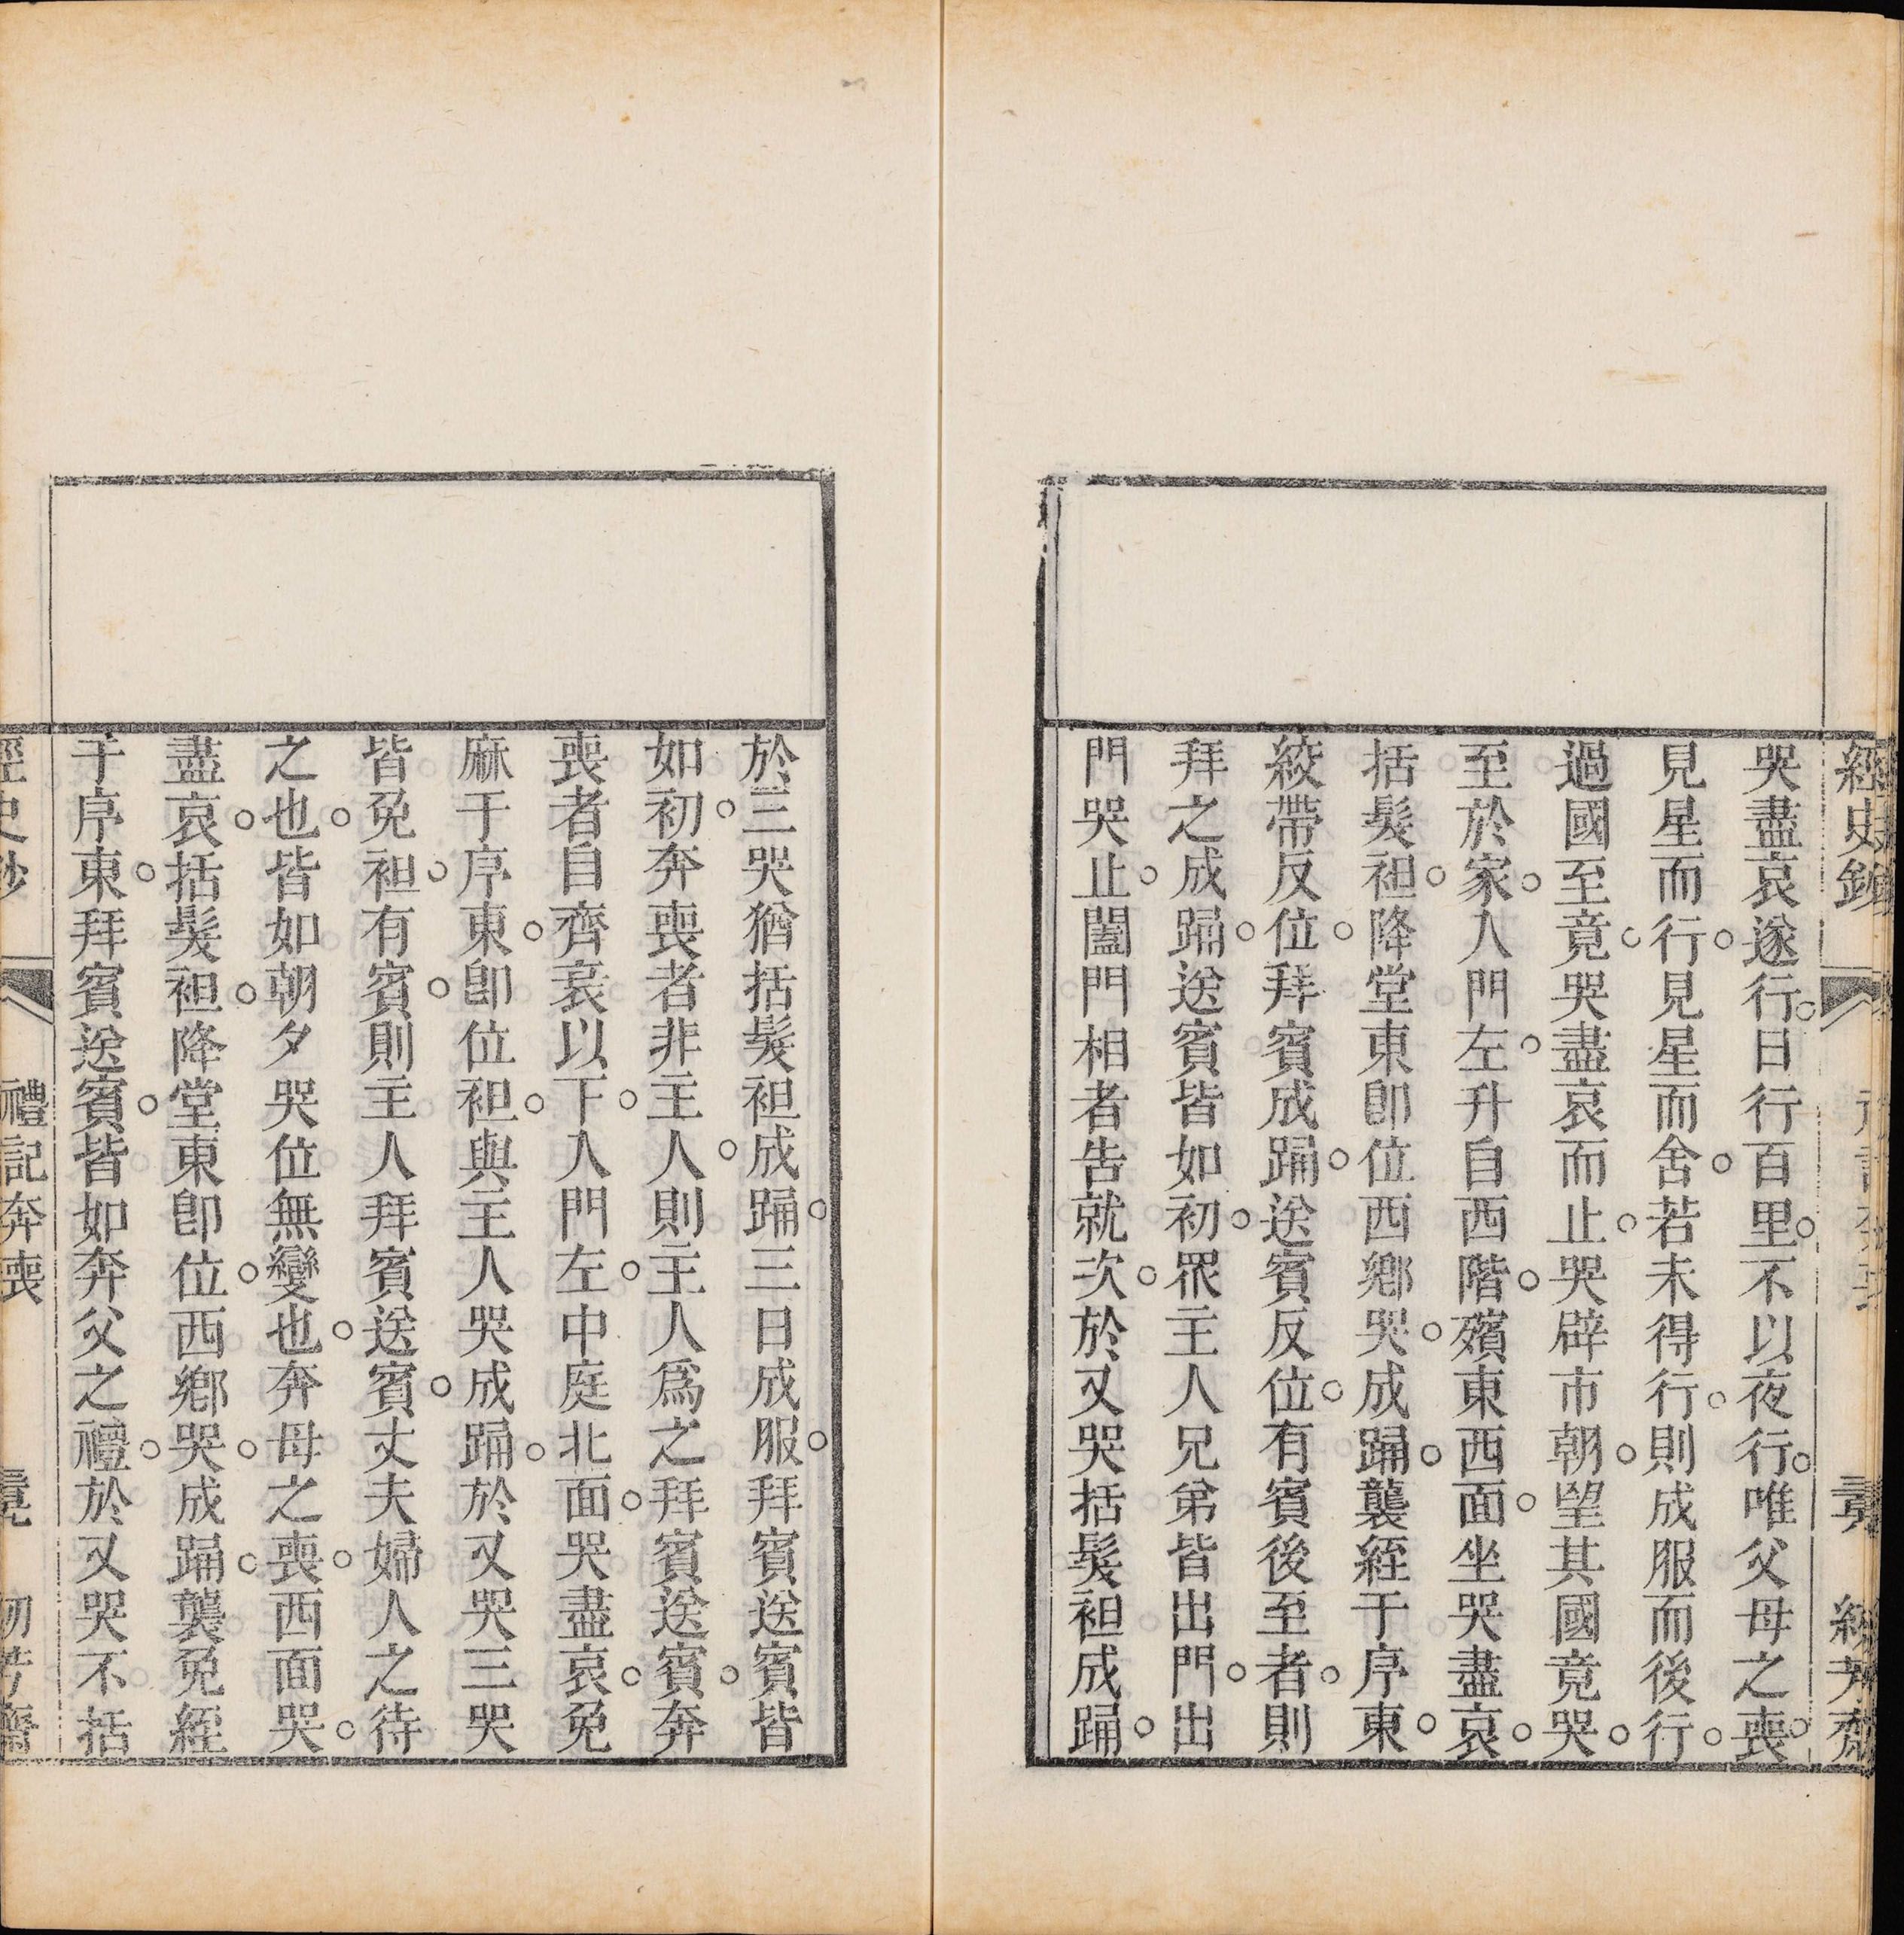 經史鈔
哭盡哀遂行。日行百里。不以夜行。唯父母之喪。
見星而行。見星而舍。若未得行。則成服而後行。
過國至竟。哭盡哀而止。哭辟市朝。望其國竟哭。
至於家。入門左。升自西階。殯東西面。坐哭盡哀。
括髮袒。降堂東卽位西鄉哭。成踊。襲絰于序東。
絞帶反位。拜賓成踊。送賓反位。有賓後至者。則
拜之成踊。送賓皆如初。眾主人兄弟皆出門。出
門哭止。闔門相者告就次。於又哭括髮袒成踊。
於三哭猶括髮袒成踊。三日成服。拜賓送賓皆
如初。奔喪者非主人。則主人爲之拜賓送賓。奔
喪者自齊衰以下。入門左。中庭北面。哭盡哀。免
麻于序東。卽位袒。與主人哭成踊。於又哭三哭
皆免袒。有賓。則主人拜賓送賓。丈夫婦人之待
之也。皆如朝夕哭位無變也。奔母之喪。西面哭。
盡哀。括髮袒。降堂東卽位。西鄉哭。成踊。襲免絰
于序東。拜賓送賓。皆如奔父之禮。於又哭不括
經史鈔
禮記奔喪